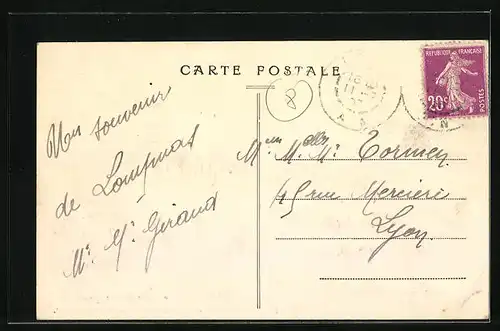 CARTE POSTALE
REPUBLIQUE FRANÇAISE
20c
POSTES
8
Un souvenir
de
Mr Mme Giraud
Mr Tormey
45 rue Mercière
Lyon